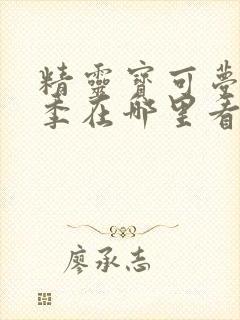 精靈寶可夢
季在哪里看
廖承志